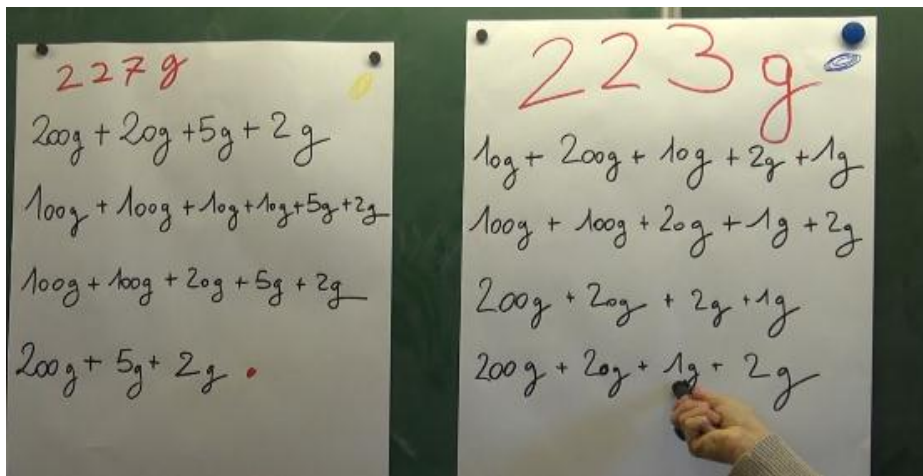 227g
200g + 20g + 5g + 2g
100g + 100g + 10g + 10g + 5g + 2g
100g + 100g + 20g + 5g + 2g
200g + 5g + 2g .
223g
10g + 200g + 10g + 2g + 1g
100g + 100g + 20g + 1g + 2g
200g + 20g + 2g + 1g
200g + 20g + 1g + 2g